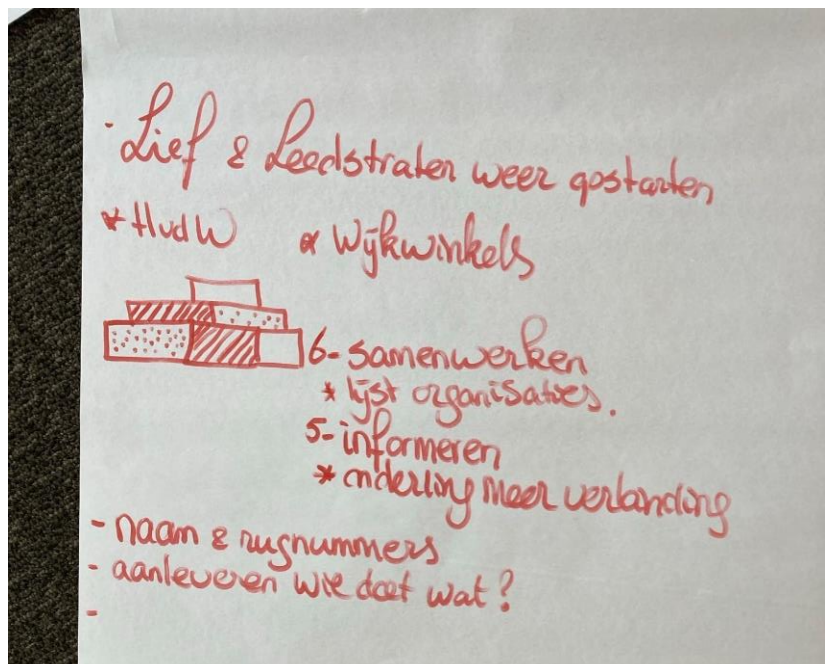 - Lief & Leedstraten weer gestarten
* HvdW * Wijkwinkels
6- samenwerken
* lijst organisaties.
5- informeren
* onderling meer verbanding
- naam & rugnummers
- aanleveren wie doet wat?
-